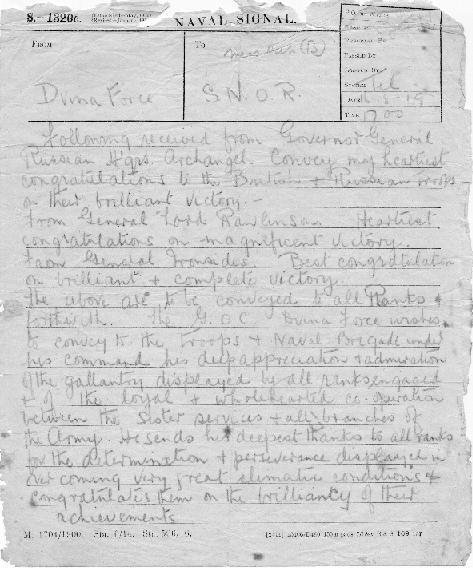 S. 1320c.
NAVAL SIGNAL.
From
To
Dvina Force
S.N.O.R.
Following received from Governor General
Russian Hqrs. Archangel. Convey my heartiest
congratulations to the British + Russian troops
on their brilliant victory. -
From General Lord Rawlinson. Heartiest
congratulations on magnificent victory.
From General Ironsides. Best congratulation
on brilliant + complete victory.
The above are to be conveyed to all Ranks
forthwith. The G.O.C. Dvina Force wishes
to convey to the troops + Naval Brigade under
his command his deep appreciation + admiration
of the gallantry displayed by all ranks engaged
+ of the loyal + wholehearted co-operation
between the sister services + all branches of
the Army. He sends his deepest thanks to all ranks
for the determination + perseverance displayed in
over coming very great climatic conditions +
congratulates them on the brilliancy of their
achievements